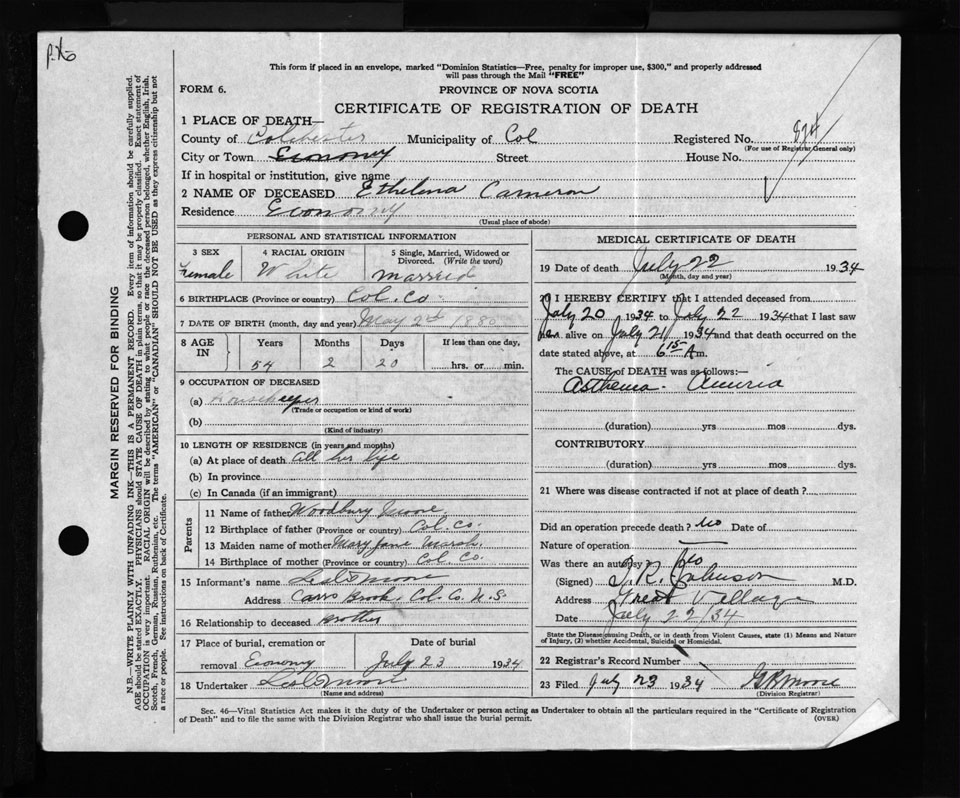 This form if placed in an envelope, marked "Dominion Statistics—Free, penalty for improper use, $300," and properly addressed
will pass through the Mail "FREE"
FORM 6.
PROVINCE OF NOVA SCOTIA
CERTIFICATE OF REGISTRATION OF DEATH
1 PLACE OF DEATH—
County of Colchester Municipality of Col Registered No. 874
(For use of Registrar General only)
City or Town Economy Street House No.
If in hospital or institution, give name
2 NAME OF DECEASED Ethelena Cameron
Residence Economy
(Usual place of abode)
PERSONAL AND STATISTICAL INFORMATION
3 SEX 4 RACIAL ORIGIN 5 Single, Married, Widowed or
Divorced. (Write the word)
Female White married
6 BIRTHPLACE (Province or country) Col. Co.
7 DATE OF BIRTH (month, day and year) May 2nd 1880
8 AGE IN Years Months Days If less than one day,
54 2 20 hrs. or min.
9 OCCUPATION OF DECEASED
(a) Housekeeper
(Trade or occupation or kind of work)
(b)
(Kind of industry)
10 LENGTH OF RESIDENCE (in years and months)
(a) At place of death all her life
(b) In province
(c) In Canada (if an immigrant)
Parents
11 Name of father Woodbury Moore
12 Birthplace of father (Province or country) Col. Co.
13 Maiden name of mother Mary Jane Marsh
14 Birthplace of mother (Province or country) Col. Co.
15 Informant's name Leslie Moore
Address Carrs Brook, Col. Co. N.S.
16 Relationship to deceased Brother
17 Place of burial, cremation or Date of burial
removal Economy July 23 1934
18 Undertaker Leslie Moore
(Name and address)
MEDICAL CERTIFICATE OF DEATH
19 Date of death July 22 1934
(Month, day and year)
20 I HEREBY CERTIFY that I attended deceased from
July 20 1934 to July 22 1934 that I last saw
her alive on July 21 1934 and that death occurred on the
date stated above, at 6 15 A m.
The CAUSE of DEATH was as follows:—
Asthema. Anuria
(duration) yrs mos dys.
CONTRIBUTORY
(duration) yrs mos dys.
21 Where was disease contracted if not at place of death?
Did an operation precede death? no Date of
Nature of operation
Was there an autopsy? No
(Signed) T. R. Johnson M.D.
Address Great Village
Date July 22/34
State the Disease causing Death, or in death from Violent Causes, state (1) Means and Nature
of Injury, (2) whether Accidental, Suicidal or Homicidal.
22 Registrar's Record Number
23 Filed July 23 1934 G R Moore
(Division Registrar)
Sec. 46—Vital Statistics Act makes it the duty of the Undertaker or person acting as Undertaker to obtain all the particulars required in the "Certificate of Registration
of Death" and to file the same with the Division Registrar who shall issue the burial permit.
(OVER)
MARGIN RESERVED FOR BINDING
N.B.—WRITE PLAINLY WITH UNFADING INK—THIS IS A PERMANENT RECORD. Every item of information should be carefully supplied.
AGE should be stated EXACTLY. PHYSICIANS should STATE CAUSE OF DEATH in plain terms, so that it may be properly classified. Exact statement of
OCCUPATION is very important. RACIAL ORIGIN will be described by stating to what people or race the deceased person belonged, whether English, Irish,
Scotch, French, German, Russian, Ruthenian, etc. The terms "AMERICAN" or "CANADIAN" SHOULD NOT BE USED as they express citizenship but not
a race or people. See instructions on back of Certificate.